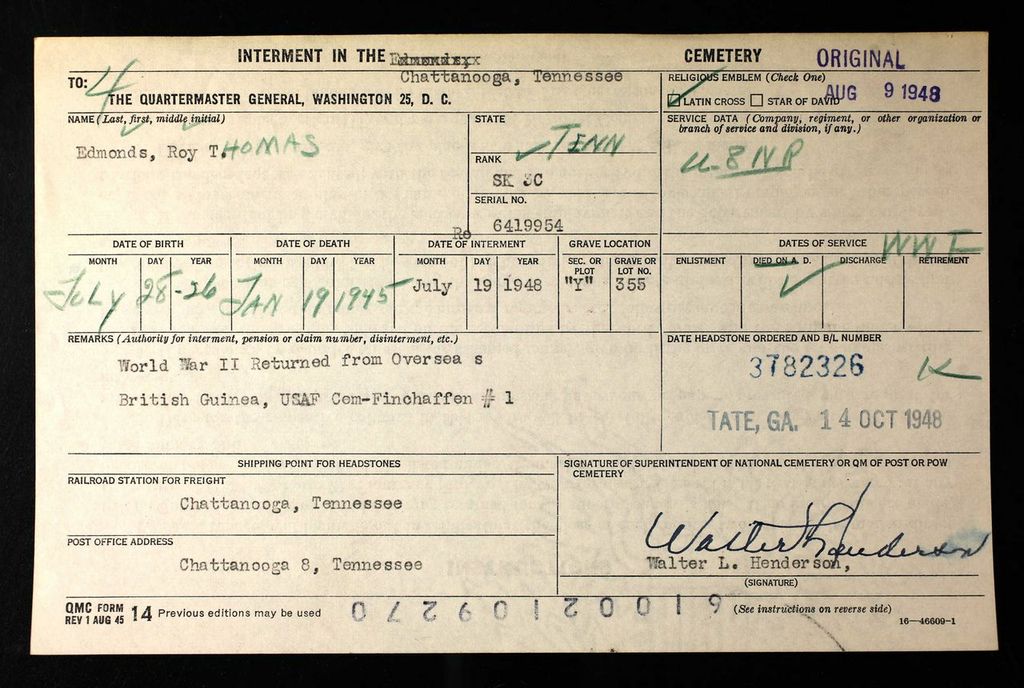 INTERMENT IN THE CEMETERY ORIGINAL
Chattanooga, Tennessee
TO: 4
THE QUARTERMASTER GENERAL, WASHINGTON 25, D. C.
RELIGIOUS EMBLEM (Check One)
☑ LATIN CROSS ☐ STAR OF DAVID
AUG 9 1948
NAME (Last, first, middle initial)
Edmonds, Roy T.HOMAS
STATE
TENN
RANK
SK 3C
SERIAL NO.
6419954
SERVICE DATA (Company, regiment, or other organization or
branch of service and division, if any.)
DATE OF BIRTH
MONTH DAY YEAR
JULY 28-26
DATE OF DEATH
MONTH DAY YEAR
JAN 19 1945
Re
DATE OF INTERMENT
MONTH DAY YEAR
July 19 1948
GRAVE LOCATION
SEC. OR PLOT GRAVE OR LOT NO.
"Y" 355
DATES OF SERVICE
ENLISTMENT DIED ON A. D. DISCHARGE RETIREMENT
REMARKS (Authority for interment, pension or claim number, disinterment, etc.)
World War II Returned from Oversea s
British Guinea, USAF Cem-Finchaffen # 1
DATE HEADSTONE ORDERED AND B/L NUMBER
3782326 K
TATE, GA. 14 OCT 1948
SHIPPING POINT FOR HEADSTONES
RAILROAD STATION FOR FREIGHT
Chattanooga, Tennessee
POST OFFICE ADDRESS
Chattanooga 8, Tennessee
SIGNATURE OF SUPERINTENDENT OF NATIONAL CEMETERY OR QM OF POST OR POW
CEMETERY
Walter L. Henderson
Walter L. Henderson,
(SIGNATURE)
QMC FORM
REV 1 AUG 45 14 Previous editions may be used
(See instructions on reverse side)
16—46609-1